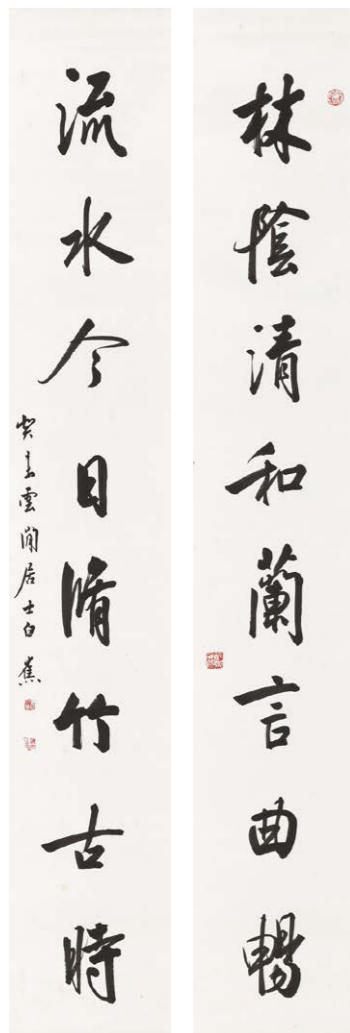 林陰清和蘭言曲暢
流水今日脩竹古時
癸未雲間居士白蕉